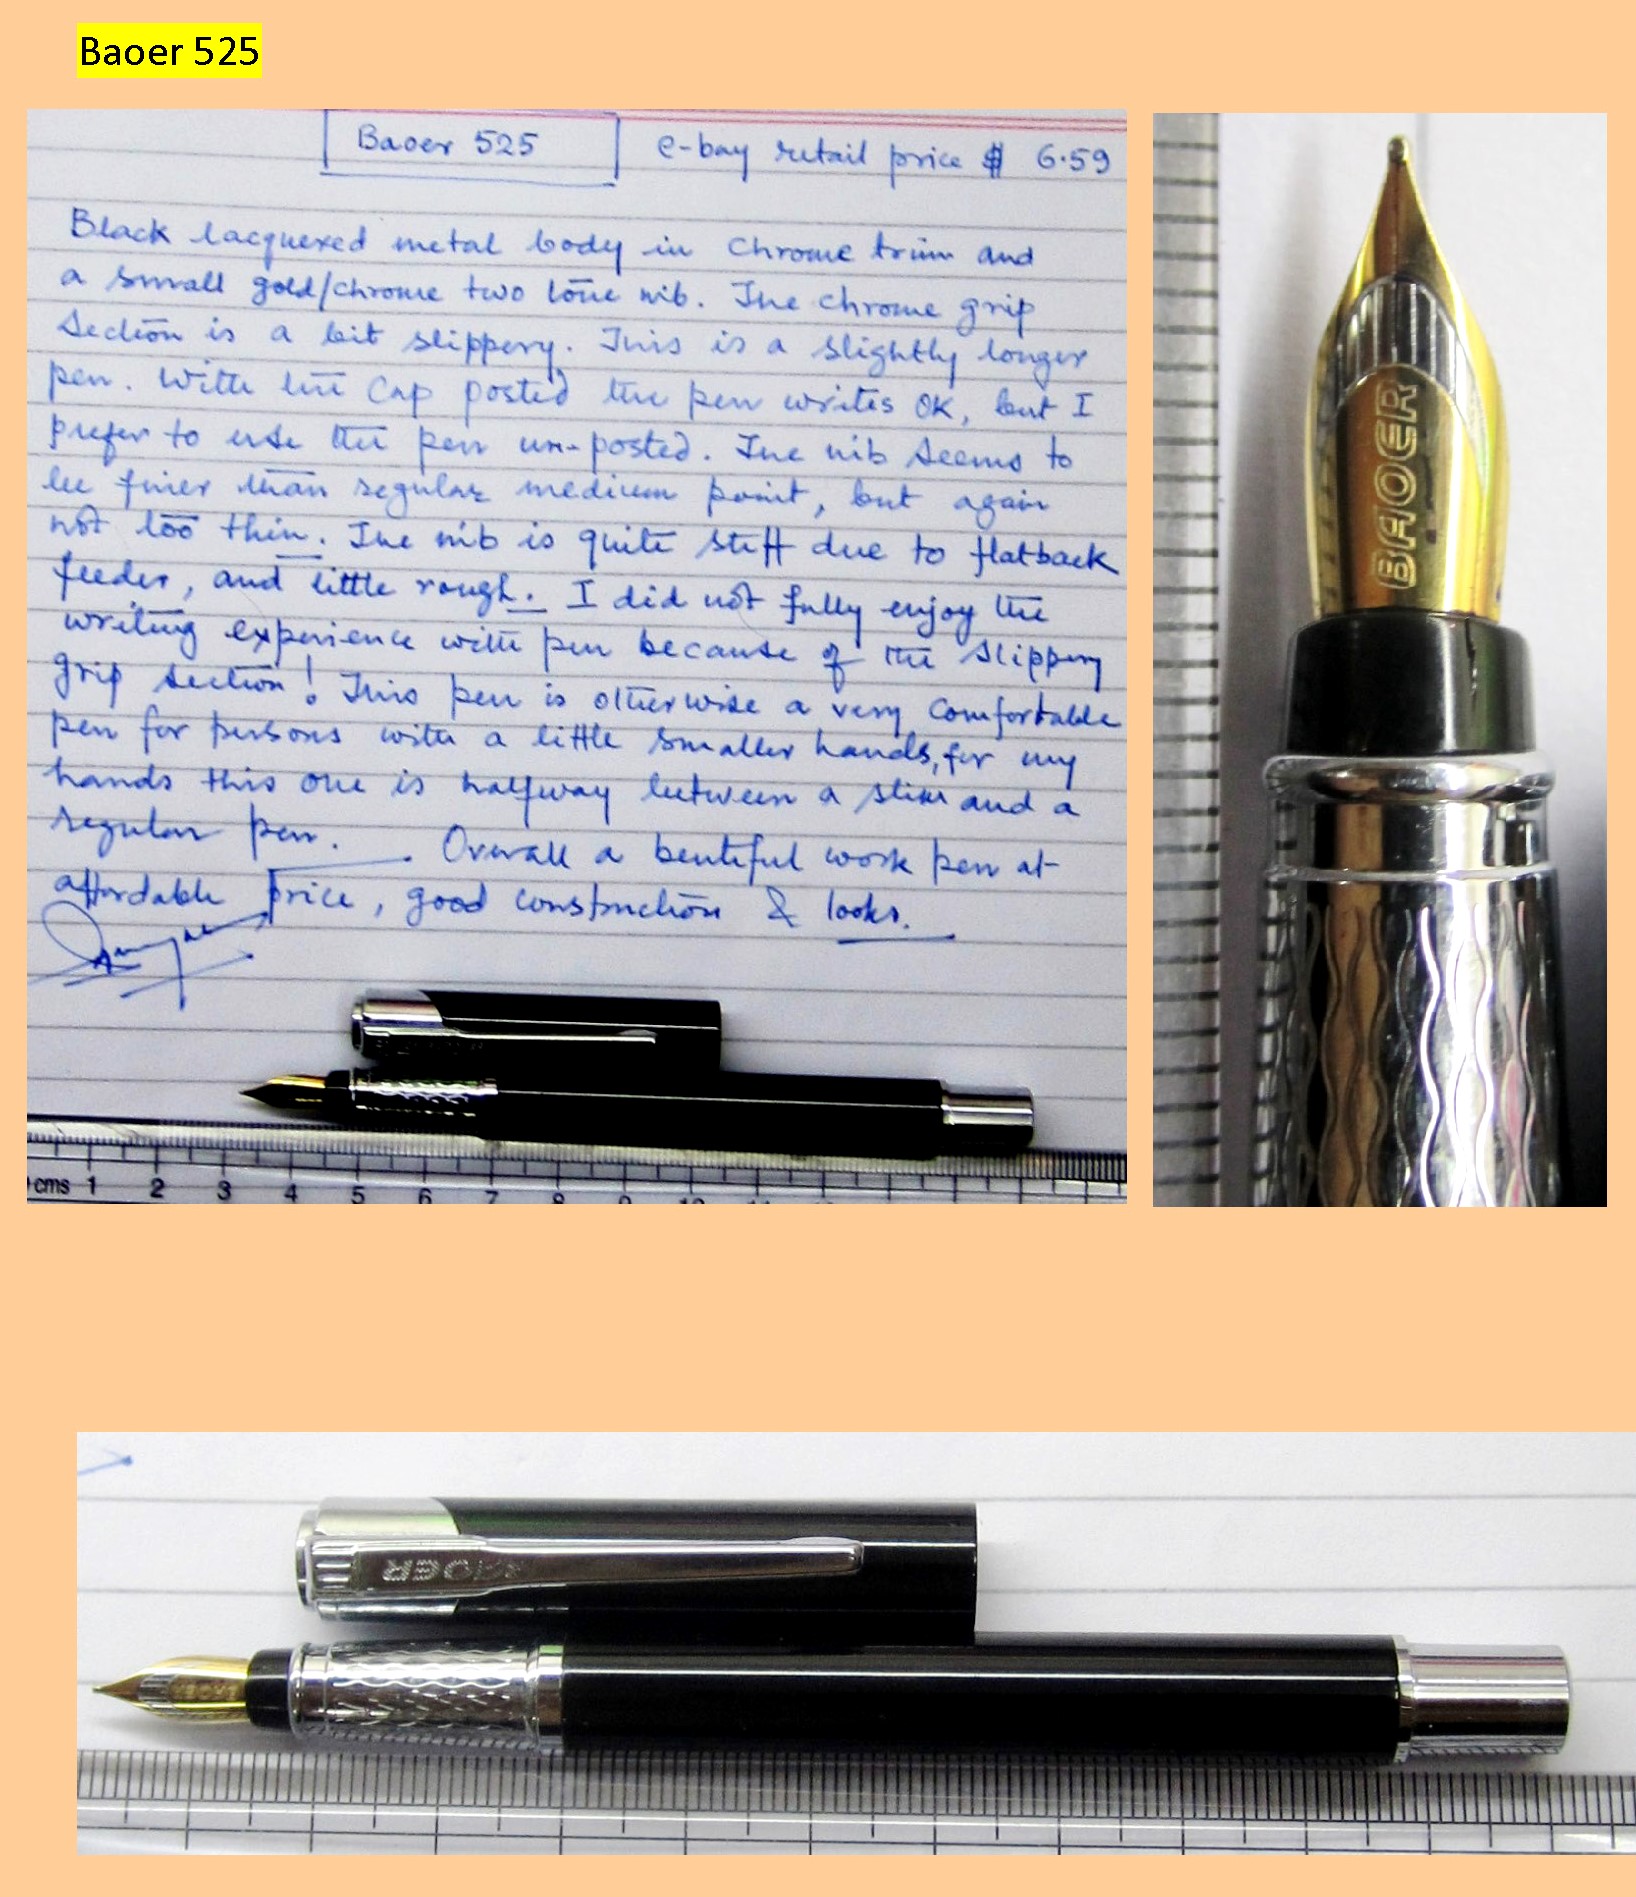 Baoer 525
Baoer 525 e-bay retail price $ 6.59
Black lacquered metal body in Chrome trim and
a small gold/chrome two tone nib. The chrome grip
Section is a bit slippery. This is a slightly longer
pen. With the Cap posted the pen writes OK, but I
prefer to use the pen un-posted. The nib seems to
be finer than regular medium point, but again
not too thin. The nib is quite stiff due to flatback
feeder, and little rough. I did not fully enjoy the
writing experience with pen because of the slippery
grip section! This pen is otherwise a very Comfortable
pen for persons with a little smaller hands, for my
hands this one is halfway between a slim and a
regular pen. Overall a beutiful work pen at
affordable price, good construction & looks.
cms 1 2 3 4 5 6 7 8 9 10
BAOER
BAOER